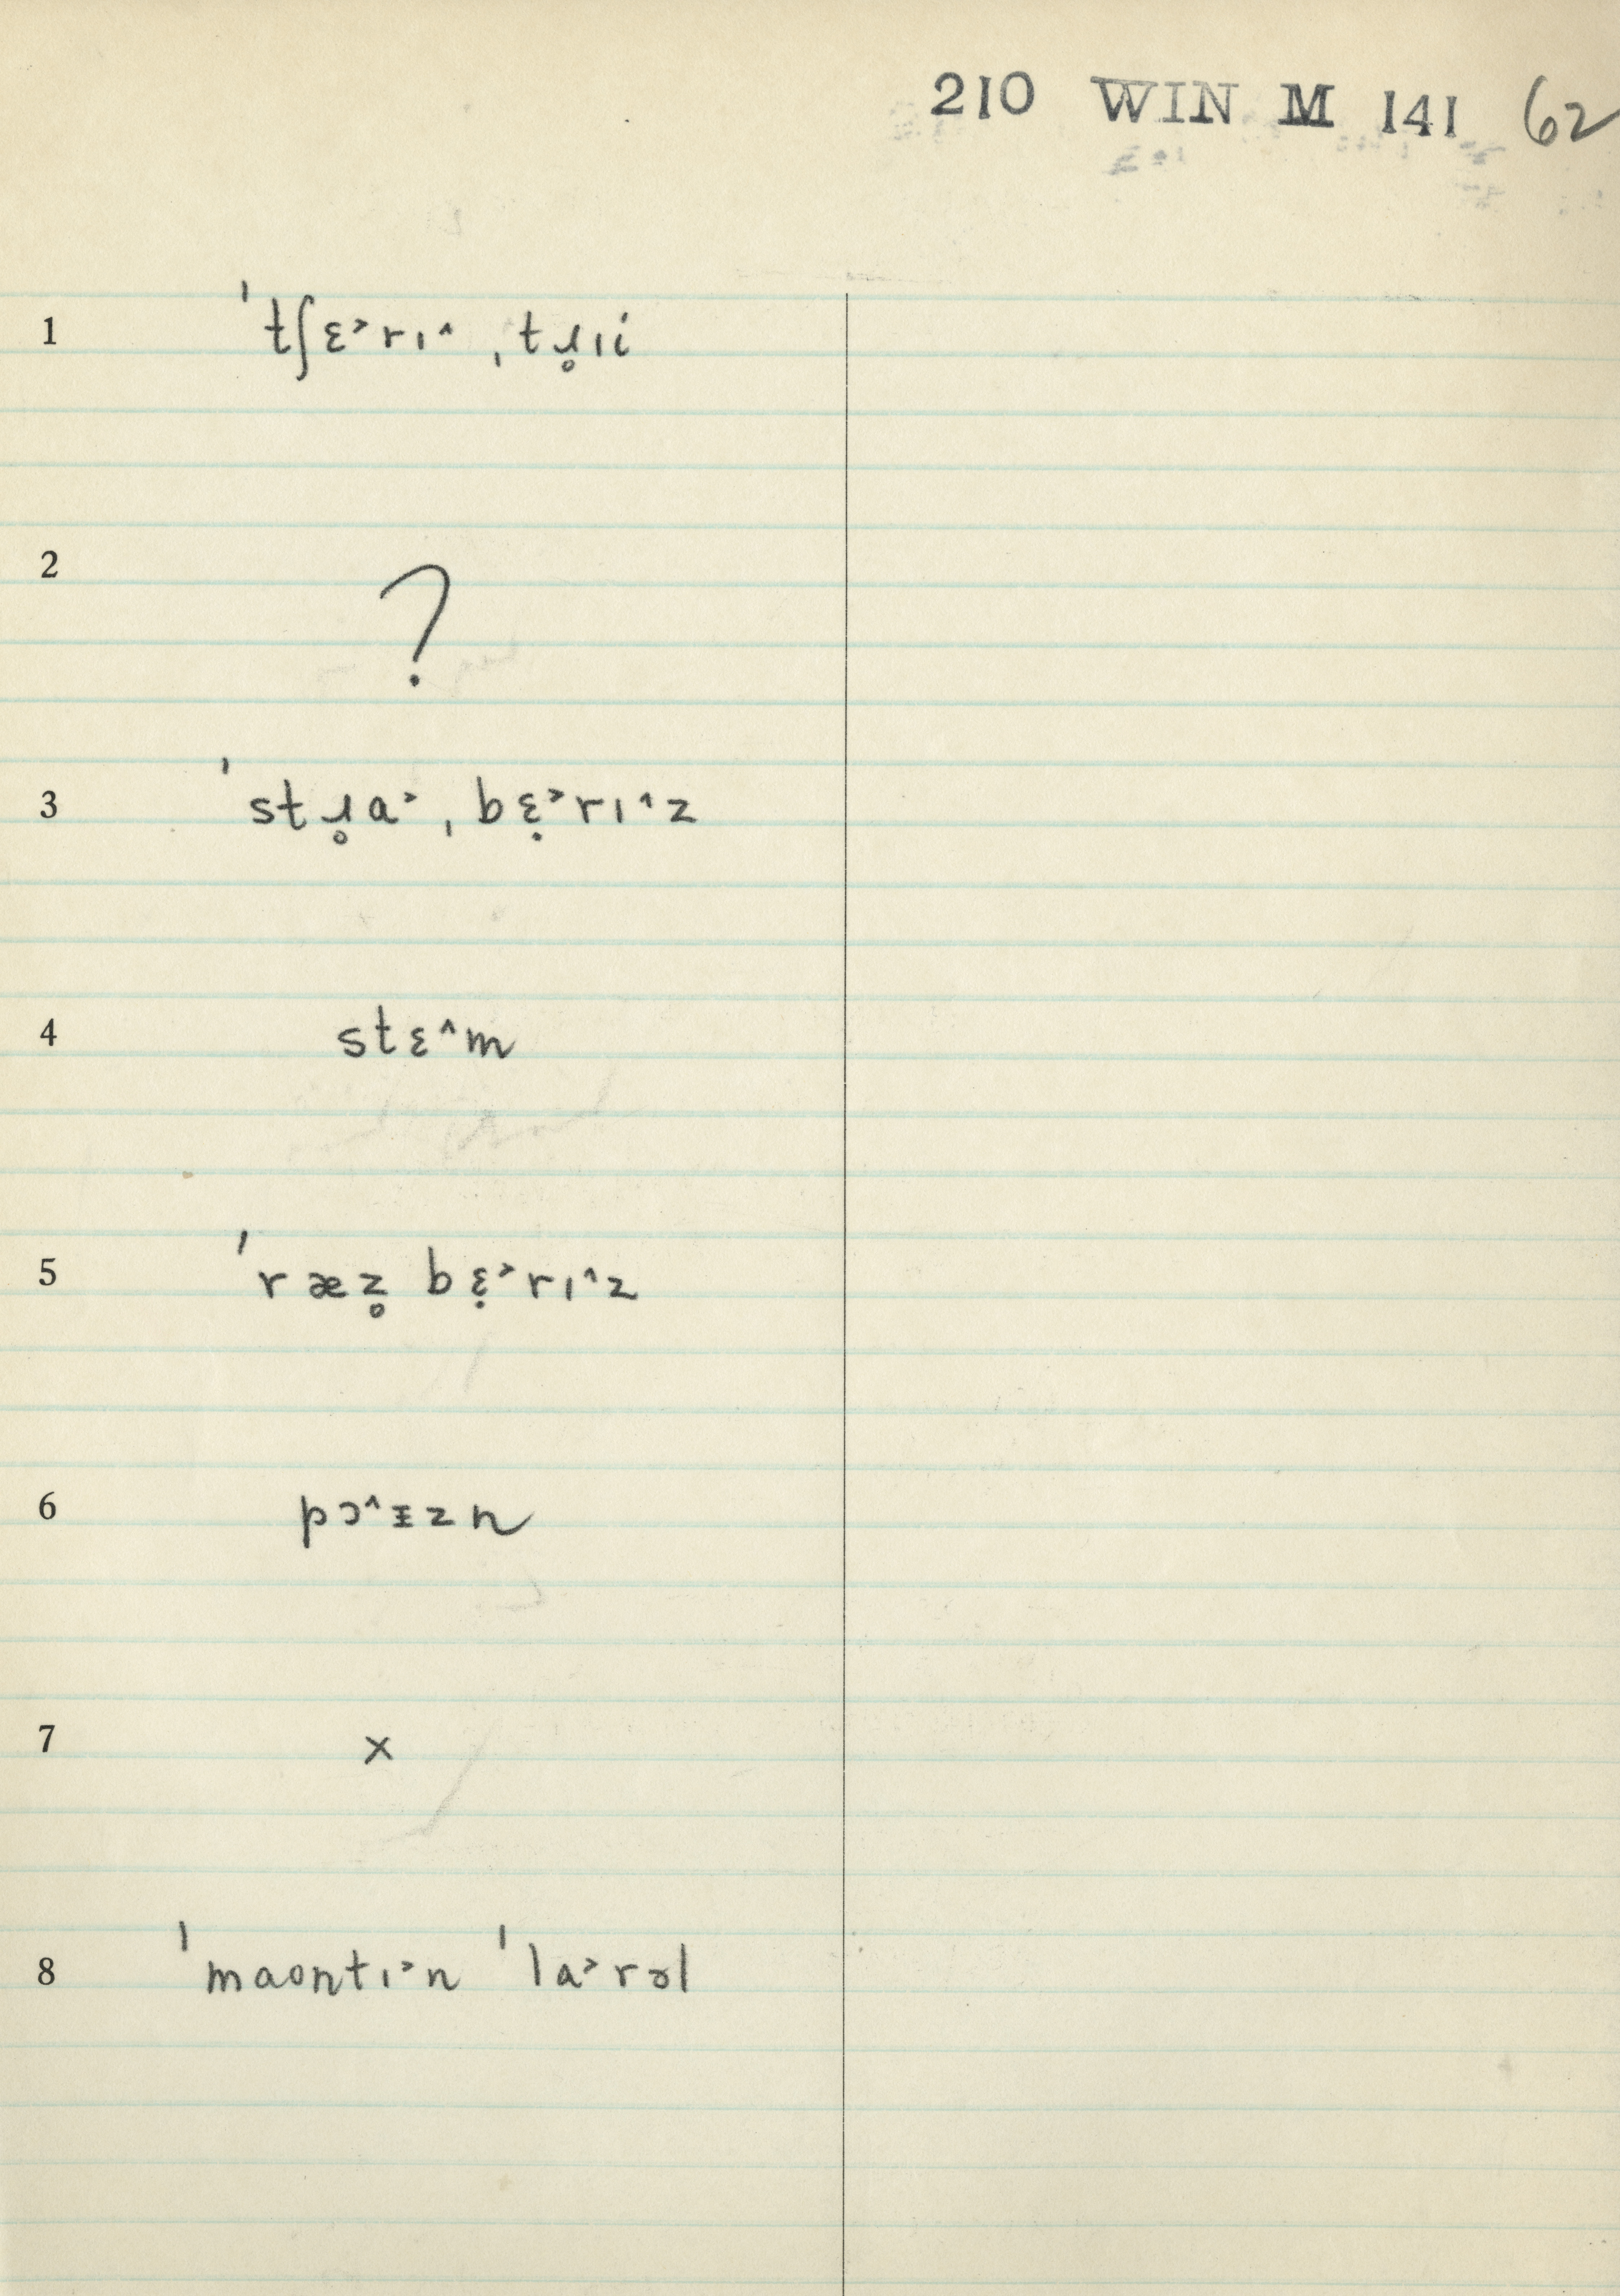 210 WIN M 141 62
1 ˈtʃɛ˃rɪ˄ ˌtɹ̥ɪi
2 ?
3 ˈstɹ̥a˃ˌbɛ̣˃rɪ˄z
4 stɛ˄m
5 ˈræz̥bɛ̣˃rɪ˄z
6 pɔ˄ᵻzn
7 x
8 ˈmaʊntɪ˃n ˈla˃rəl